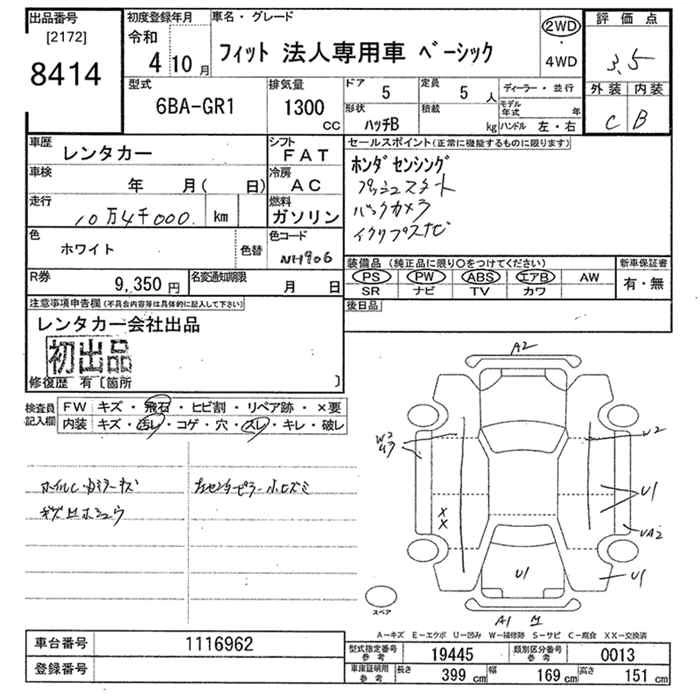 出品番号
[2172]
8414
初度登録年月
令和
4年10月
車名・グレード
フィット 法人専用車 ベーシック
2WD
・
4WD
評価点
3.5
外装 内装
C B
型式
6BA-GR1
排気量
1300
CC
ドア
5
形状
ハッチB
定員
5人
積載
kg
ディーラー・並行
モデル年式 年
ハンドル 左・右
車歴
レンタカー
シフト
FAT
車検
年 月( 日)
冷房
AC
走行
10万4千000 km
燃料
ガソリン
色
ホワイト
色替
色コード
NH906
R券
9,350円
名変通知期限
月 日
セールスポイント(正常に機能するものに限ります)
ホンダセンシング
プッシュスタート
バックカメラ
イクリプスナビ
装備品(純正品に限り○をつけてください)
PS PW ABS エアB AW
SR ナビ TV カワ
新車保証書
有・無
後日品
注意事項申告欄(不具合内容等は具体的に記入して下さい)
レンタカー会社出品
初出品
修復歴 有〔箇所 〕
検査員記入欄
FW キズ・飛石・ヒビ割・リペア跡・×要
内装 キズ・汚レ・コゲ・穴・スレ・キレ・破レ
キズ
A2
W2
U2
U1
UA2
U1
U1
A1
X
X
スペア
A-キズ E-エクボ U-凹み W-補修跡 S-サビ C-腐食 XX-交換済
車台番号
1116962
登録番号
型式指定番号
参考
19445
類別区分番号
参考
0013
車庫証明用
参考
長さ 399 cm
幅 169 cm
高さ 151 cm